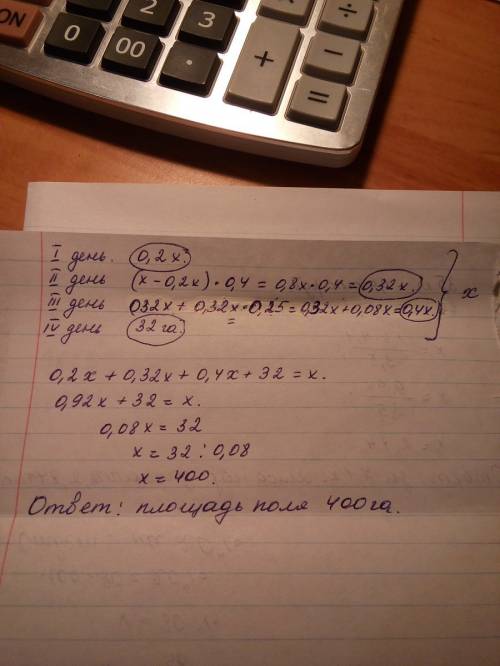 ON
2
3
÷
0
00
.
+
−
=
I день. 0,2x.
II день (x − 0,2x) · 0,4 = 0,8x · 0,4 = 0,32x.
III день 0,32x + 0,32x · 0,25 = 0,32x + 0,08x = 0,4x.
IV день 32 га.
x
0,2x + 0,32x + 0,4x + 32 = x.
0,92x + 32 = x.
0,08x = 32
x = 32 : 0,08
x = 400.
Ответ: площадь поля 400 га.